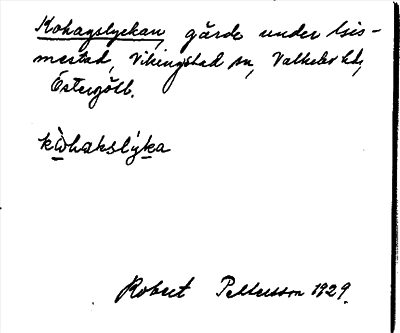 Kohagslyckan, gärde under Sis-
mestad, Vikingstad sn, Valkebo hd,
Östergötl.
kohakslyka
Robert Pettersson 1929.